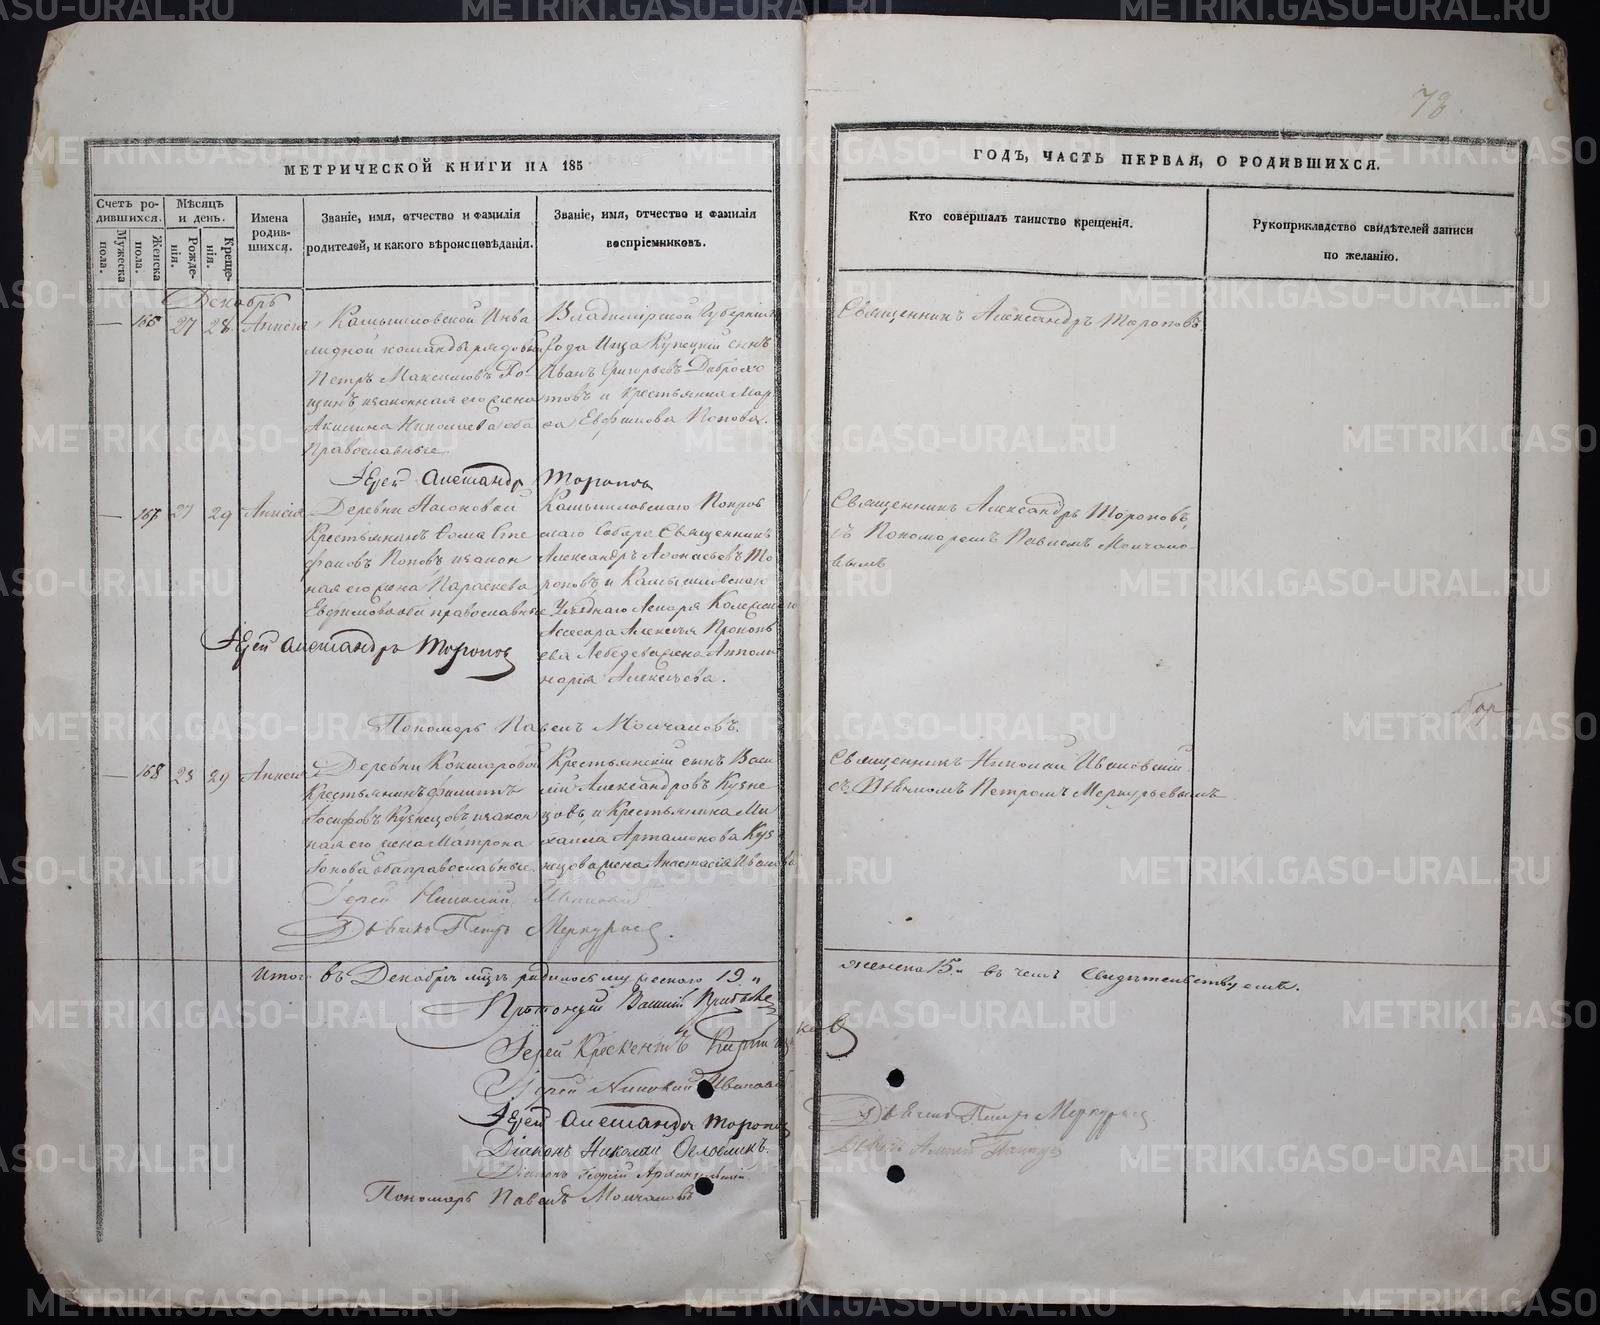 78
МЕТРИЧЕСКОЙ КНИГИ НА 185
ГОДЪ, ЧАСТЬ ПЕРВАЯ, О РОДИВШИХСЯ.
Счетъ родившихся.
Мужеска пола.
Женска пола.
Мѣсяцъ и день.
Рожденія.
Крещенія.
Имена родившихся.
Званіе, имя, отчество и фамилія
родителей, и какого вѣроисповѣданія.
Званіе, имя, отчество и фамилія
воспріемниковъ.
Кто совершалъ таинство крещенія.
Рукоприкладство свидѣтелей записи
по желанію.
Декабрь
— 166 27 28 Анисія
Камышловской Инва
лидной команды рядовый
Петръ Максимовъ
законная его жена
Акилина Николаева оба
Православные.
Владимірской Губерніи
Купецкій сынъ
Иванъ Григорьевъ
и крестьянка
Евфимова Попова.
Священникъ Александръ Тороповъ.
Іерей Александръ Тороповъ
— 167 27 29 Анисія
Деревни
Крестьянинъ Ѳома Сте
фановъ Поповъ и закон
ная его жена Параскева
Евфимова оба православные
Камышловскаго Покров
скаго Собора Священникъ
Александръ Аѳонасьевъ То
роповъ и Камышловскаго
Уѣзднаго Лекаря
Ассесора Алексѣя Прокопь
ева Лебедева жена Апполи
нарія Алексѣева.
Священникъ Александръ Тороповъ
съ Пономаремъ Павломъ Молчано
вымъ
Іерей Александръ Тороповъ
Пономарь Павелъ Молчановъ.
— 168 23 29 Анисія
Деревни Кокшаровой
Крестьянинъ Филиппъ
Іосифовъ Кузнецовъ и закон
ная его жена Матрона
оба православные.
Крестьянскій сынъ Васи
лій Александровъ Кузне
цовъ, и Крестьянина Ми
хаила Артамонова Куз
нецова жена Анастасія Иванова
Священникъ Николай Ивановскій
съ Дьячкомъ Петромъ Меркурьевымъ
Іерей Николай
Дьячекъ Петръ Меркурьевъ.
Итого въ Декабрѣ мцѣ родилось мужескаго 19"
женска 15" въ чемъ Свидѣтельствуемъ.
Іерей Крескентъ
Іерей Николай
Іерей Александръ Тороповъ
Діаконъ Николай
Діаконъ Георгій
Пономарь Павелъ Молчановъ
Дьячекъ Петръ Меркурьевъ
METRIKI.GASO-URAL.RU